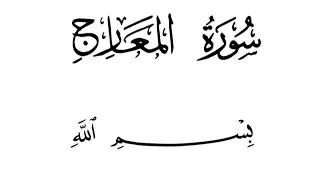 سُورَةُ المَعَارِجِ
بِسْمِ ٱللَّهِ